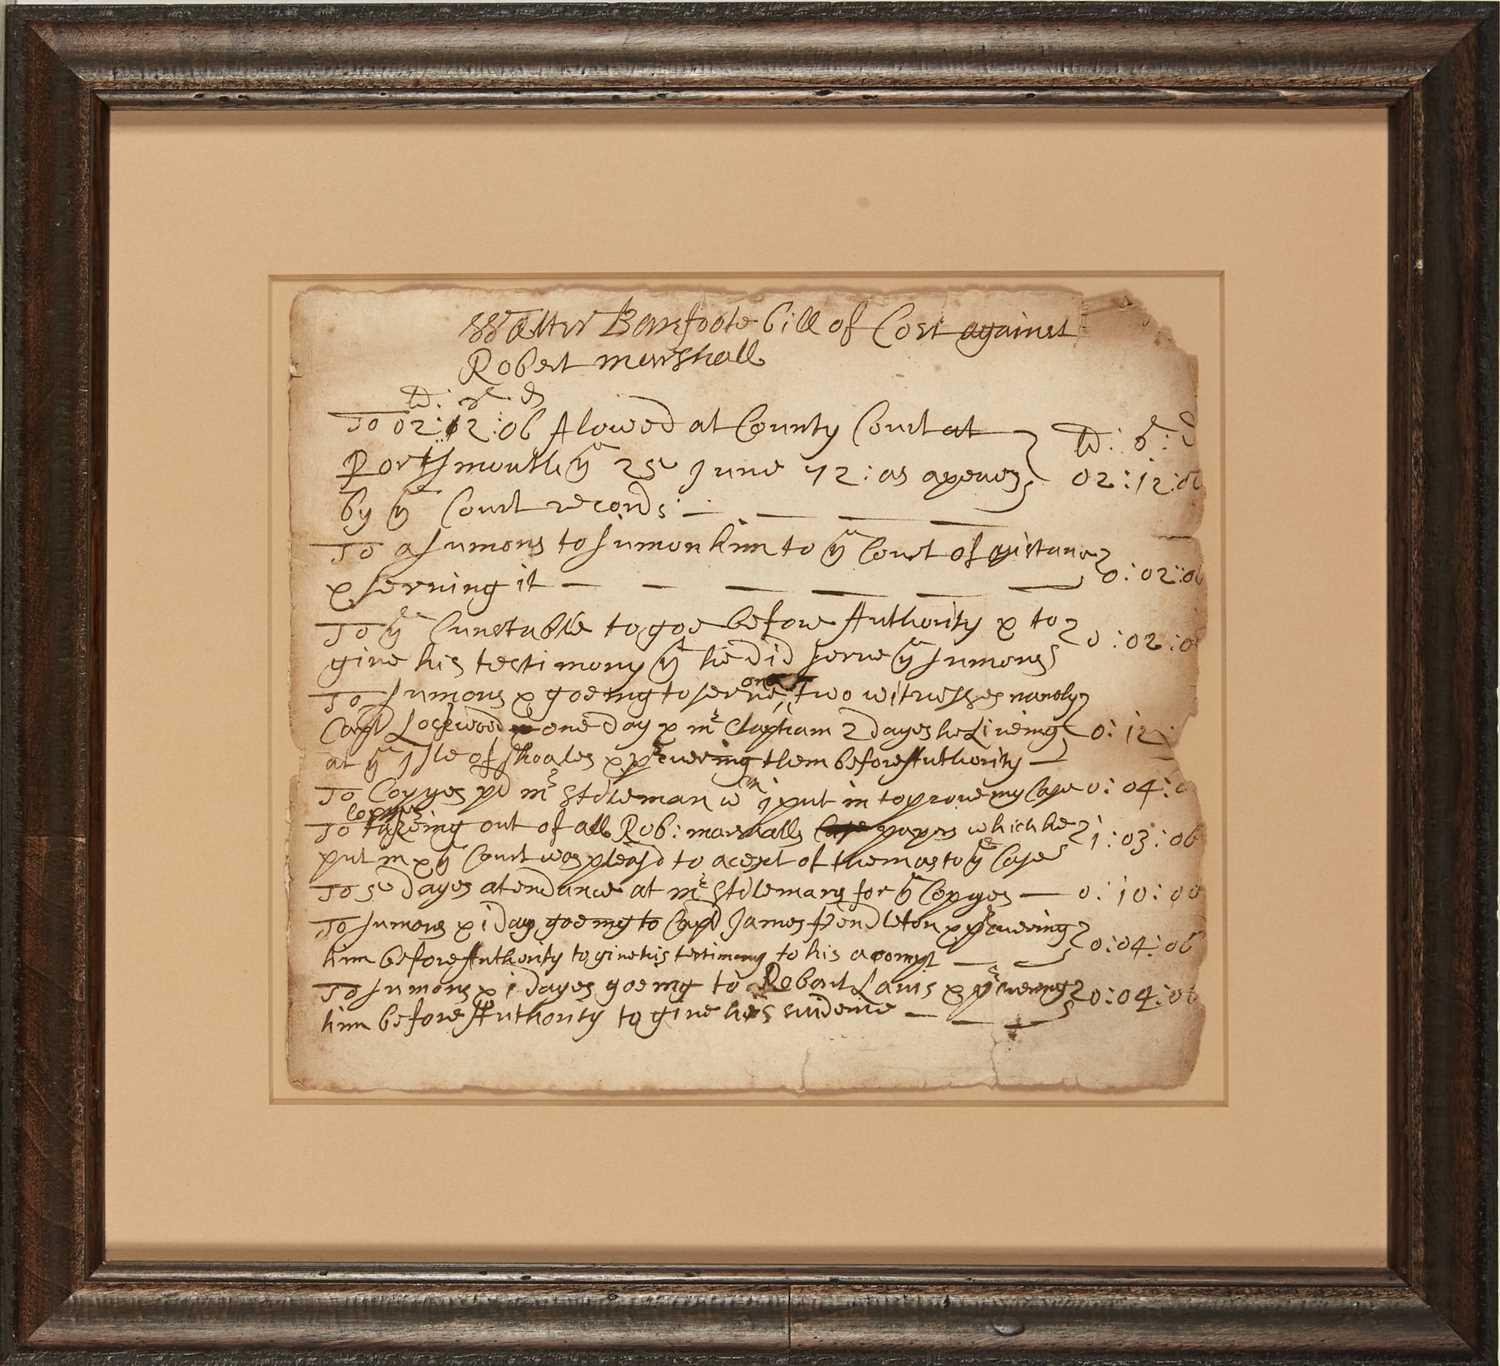 Walter Barefoote bill of Cost against
Robert marshall
li: s: d
To 02:12:06 Alowed at County Court at li: s: d
Portsmouth ye 25 June 72: as aperes 02:12:0
by ye Court records: —
To a sumons to sumon him to ye Court of asistanc
& serveing it — 0:02:0
To ye Cunstable to goe before Authority & to
give his testimony yt he did serve ye sumons 0:02:0
To sumons & goeing to serve one two witnesses namely
Capt Lockwood one day & mr Clapham 2 dayes he Liveing 0:12:
at ye Isle of Shoales & procuering them before Authority —
To Copyes pd mr Stileman wch I put in to prove my Case 0:04:0
Copyes
To takeing out of all Rob: marshalls Case papers which he 1:03:06
put in & ye Court was pleasd to acept of them as to ye Case
To 5 dayes atendance at mr Stilemans for ye Copyes — 0:10:00
To sumons & 1 day goeing to Capt James Pendleton & procuering
him before Authority to give his testimony to his acompt — 0:04:06
To sumons & 1 dayes goeing to Robart Laws & procuering 0:04:06
him before Authority to give his evidence —